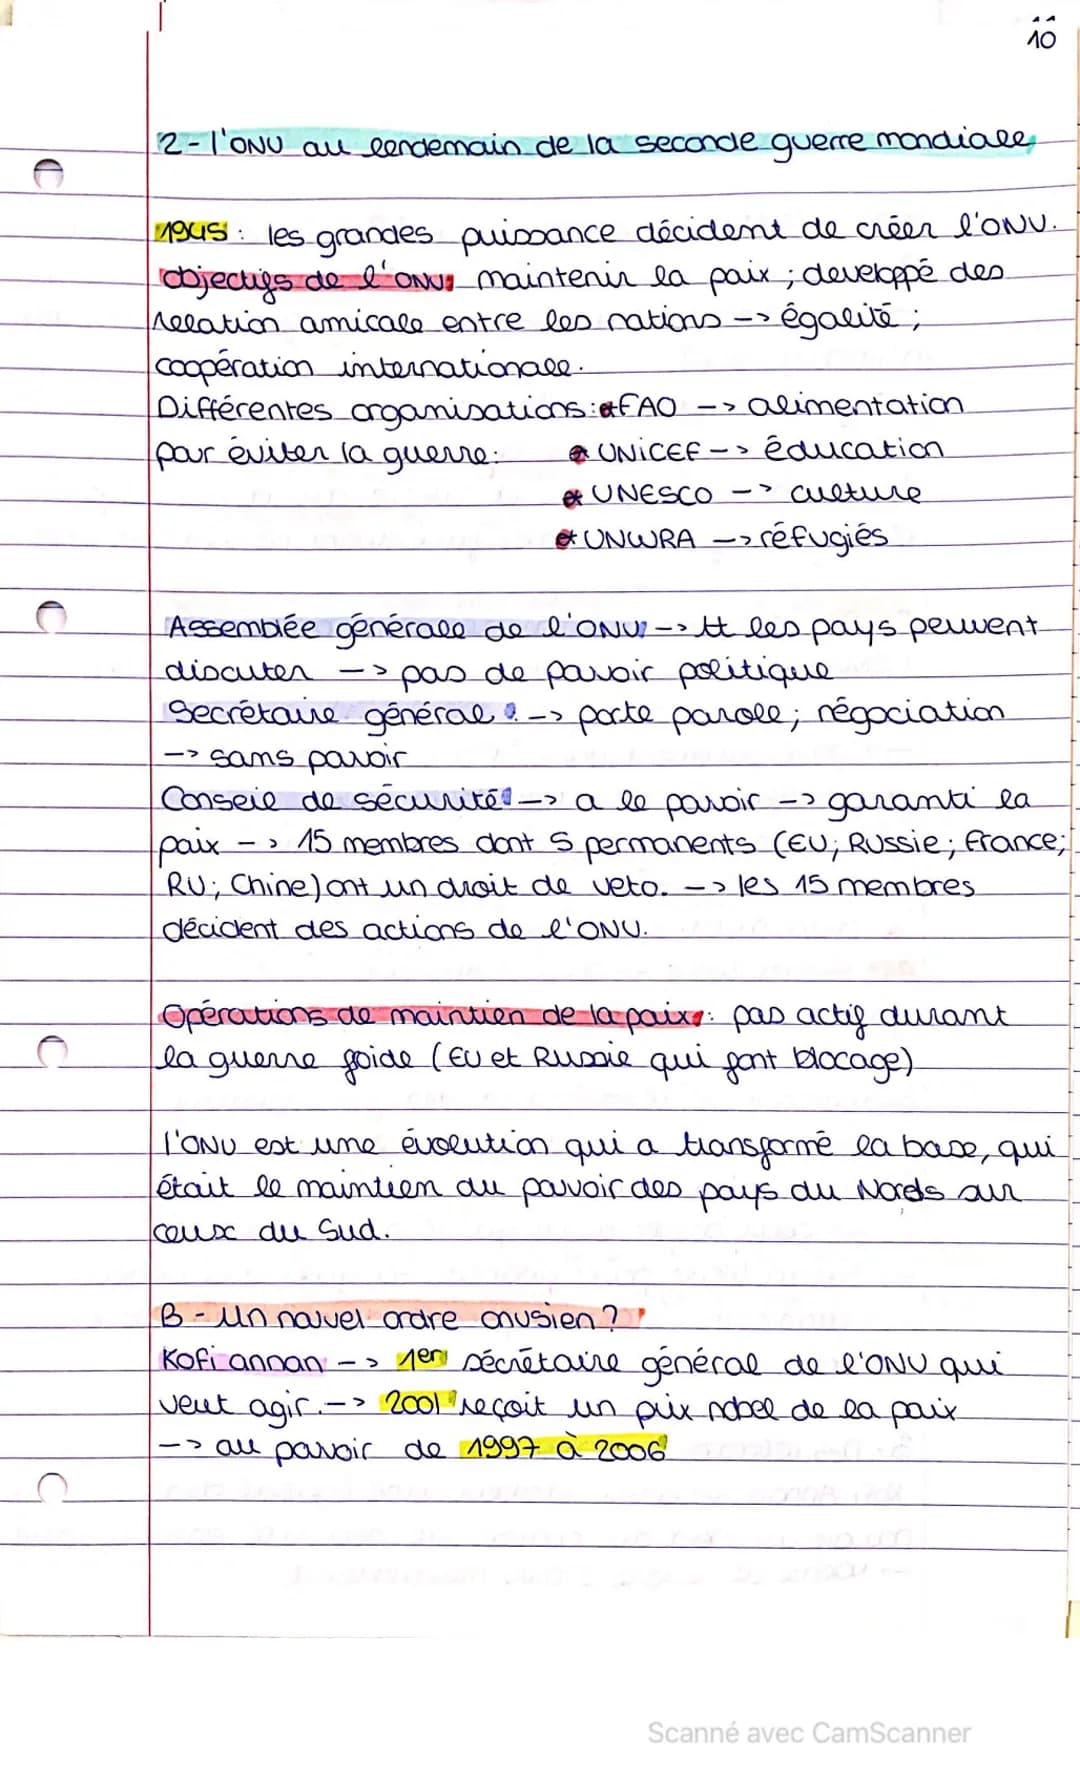 10
2-l'ONU au lendemain de la seconde guerre mondiale
1945: les grandes puissance décident de créer l'ONU.
objectifs de l'ONU: maintenir la paix ; developpé des
relation amicale entre les nations -> égalité ;
coopération internationale.
Différentes organisations: * FAO -> alimentation
par éviter la guerre: * UNICEF -> éducation
* UNESCO -> culture
* UNWRA -> réfugiés
Assemblée générale de l'ONU -> tt les pays peuvent
discuter -> pas de pouvoir politique
Secrétaire générale -> porte parole ; négociation
-> sans pouvoir
Conseil de sécurité -> a le pouvoir -> garanti la
paix -> 15 membres dont 5 permanents (EU; Russie; France;
RU; Chine) ont un droit de veto. -> les 15 membres
décident des actions de l'ONU.
Opérations de maintien de la paix: pas actif durant
la guerre foide (EU et Russie qui font blocage)
l'ONU est une évolution qui a transformé la base, qui
était le maintien du pouvoir des pays du Nords sur
ceux du Sud.
B - Un nouvel ordre onusien ?
Kofi annan -> 1er sécrétaire général de l'ONU qui
veut agir. -> 2001 reçoit un prix nobel de la paix
-> au pouvoir de 1997 à 2006
Scanné avec CamScanner